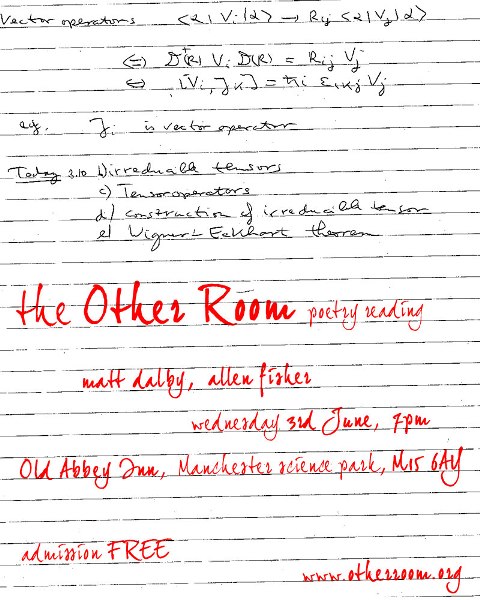 Vector operators <α|Vi|α> → Rij <α|Vj|α>
⇔ D†(R) Vi D(R) = Rij Vj
⇔ [Vi, Jk] = ħi εikj Vj
eg. Ji is vector operator
Today 3.10 b) irreducible tensors
c) Tensor operators
d) construction of irreducible tensor
e) Wigner-Eckhart theorem
the Other Room poetry reading
matt dalby, allen fisher
wednesday 3rd June, 7pm
Old Abbey Inn, Manchester science park, M15 6AY
admission FREE
www.otherroom.org